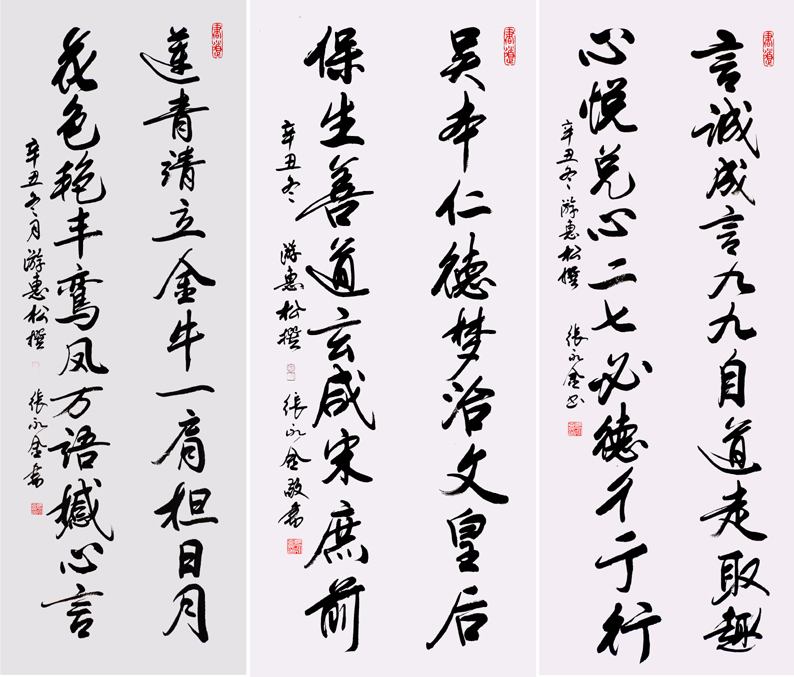 言诚成言九九自道走取趣
心悦兑心二七必德彳亍行
辛丑冬 游惠松撰 張永金书
吴夲仁德梦治文皇后
保生善道玄咸宋庶前
辛丑冬 游惠松撰 張永金敬書
莲青靖立金牛一肩担日月
花色艳丰鸾凤万语撼心言
辛丑冬月游惠松撰 張永金書